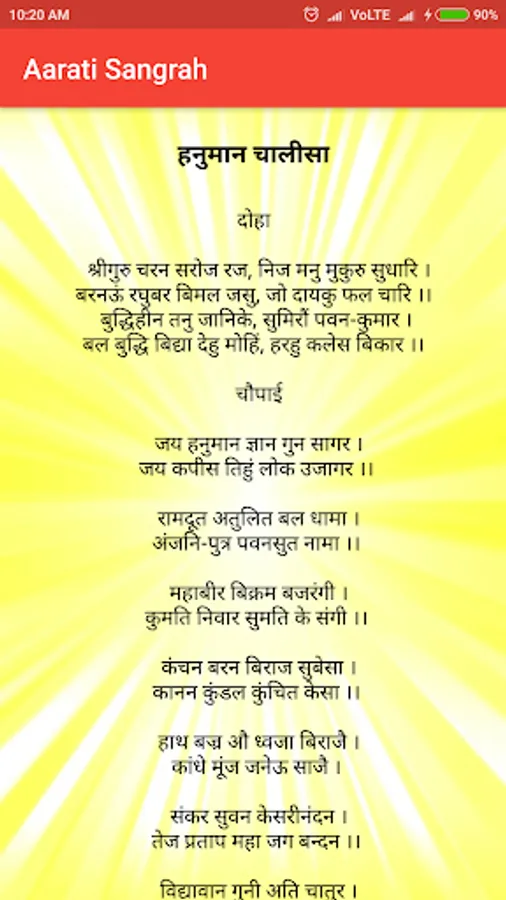 10:20 AM VoLTE 90%
Aarati Sangrah
हनुमान चालीसा
दोहा
श्रीगुरु चरन सरोज रज, निज मनु मुकुरु सुधारि ।
बरनऊं रघुबर बिमल जसु, जो दायकु फल चारि ।।
बुद्धिहीन तनु जानिके, सुमिरौं पवन-कुमार ।
बल बुद्धि बिद्या देहु मोहिं, हरहु कलेस बिकार ।।
चौपाई
जय हनुमान ज्ञान गुन सागर ।
जय कपीस तिहुं लोक उजागर ।।
रामदूत अतुलित बल धामा ।
अंजनि-पुत्र पवनसुत नामा ।।
महाबीर बिक्रम बजरंगी ।
कुमति निवार सुमति के संगी ।।
कंचन बरन बिराज सुबेसा ।
कानन कुंडल कुंचित केसा ।।
हाथ बज्र औ ध्वजा बिराजै ।
कांधे मूंज जनेऊ साजै ।
संकर सुवन केसरीनंदन ।
तेज प्रताप महा जग बन्दन ।।
विद्यावान गुनी अति चातुर ।